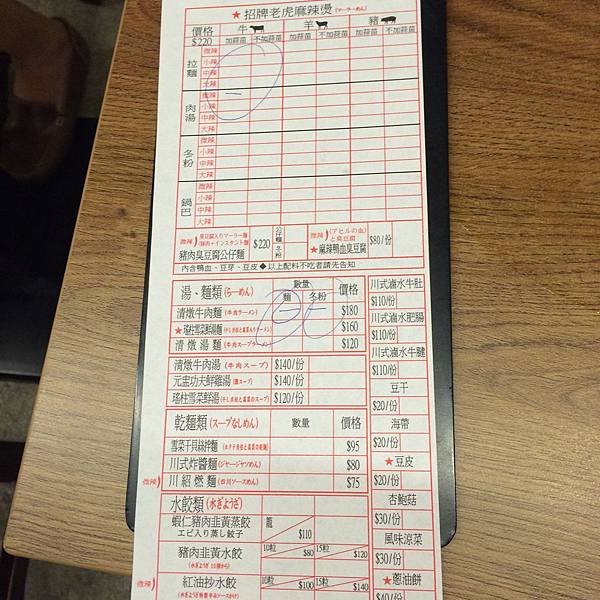 ★招牌老虎麻辣燙(マーラーめん)
價格 牛 羊 豬
$220 加蒜苗 不加蒜苗 加蒜苗 不加蒜苗 加蒜苗 不加蒜苗
拉麵 微辣
小辣
中辣
大辣
肉湯 微辣
小辣
中辣
大辣
冬粉 微辣
小辣
中辣
大辣
鍋巴 微辣
小辣
中辣
大辣
微辣 豬肉臭豆腐公仔麵 $220 公仔麵 冬粉
微辣 (アヒルの血)と臭豆腐 ★麻辣鴨血臭豆腐 $80/份
內含鴨血、豆芽、豆皮◆以上配料不吃者請先告知
湯、麵類(らーめん) 數量 麵 冬粉 價格
清燉牛肉麵(牛肉ラーメン) $180
★瑤柱雪菜鮮湯麵 $160
清燉湯麵(牛肉スープラーメン) $120
清燉牛肉湯(牛肉スープ) $140/份
元盅功夫鮮雞湯(鷄スープ) $140/份
瑤柱雪菜鮮湯 $120/份
乾麵類(スープなしめん) 數量 價格
雪菜干貝絲拌麵 $95
川式炸醬麵(ジャージャンめん) $80
微辣 川紹燃麵(四川ソースめん) $75
水餃類(水ぎょうざ)
蝦仁豬肉韭黃蒸餃 籠 $110
エビ入り蒸し餃子
豬肉韭黃水餃 10粒 $80 15粒 $120
微辣 紅油抄水餃 10粒 $100 15粒 $140
川式滷水牛肚
$110/份
川式滷水肥腸
$110/份
川式滷水牛腱
$110/份
豆干
$20/份
海帶
$20/份
★豆皮
$20/份
杏鮑菇
$30/份
風味涼菜
$30/份
★蔥油餅
$40/份